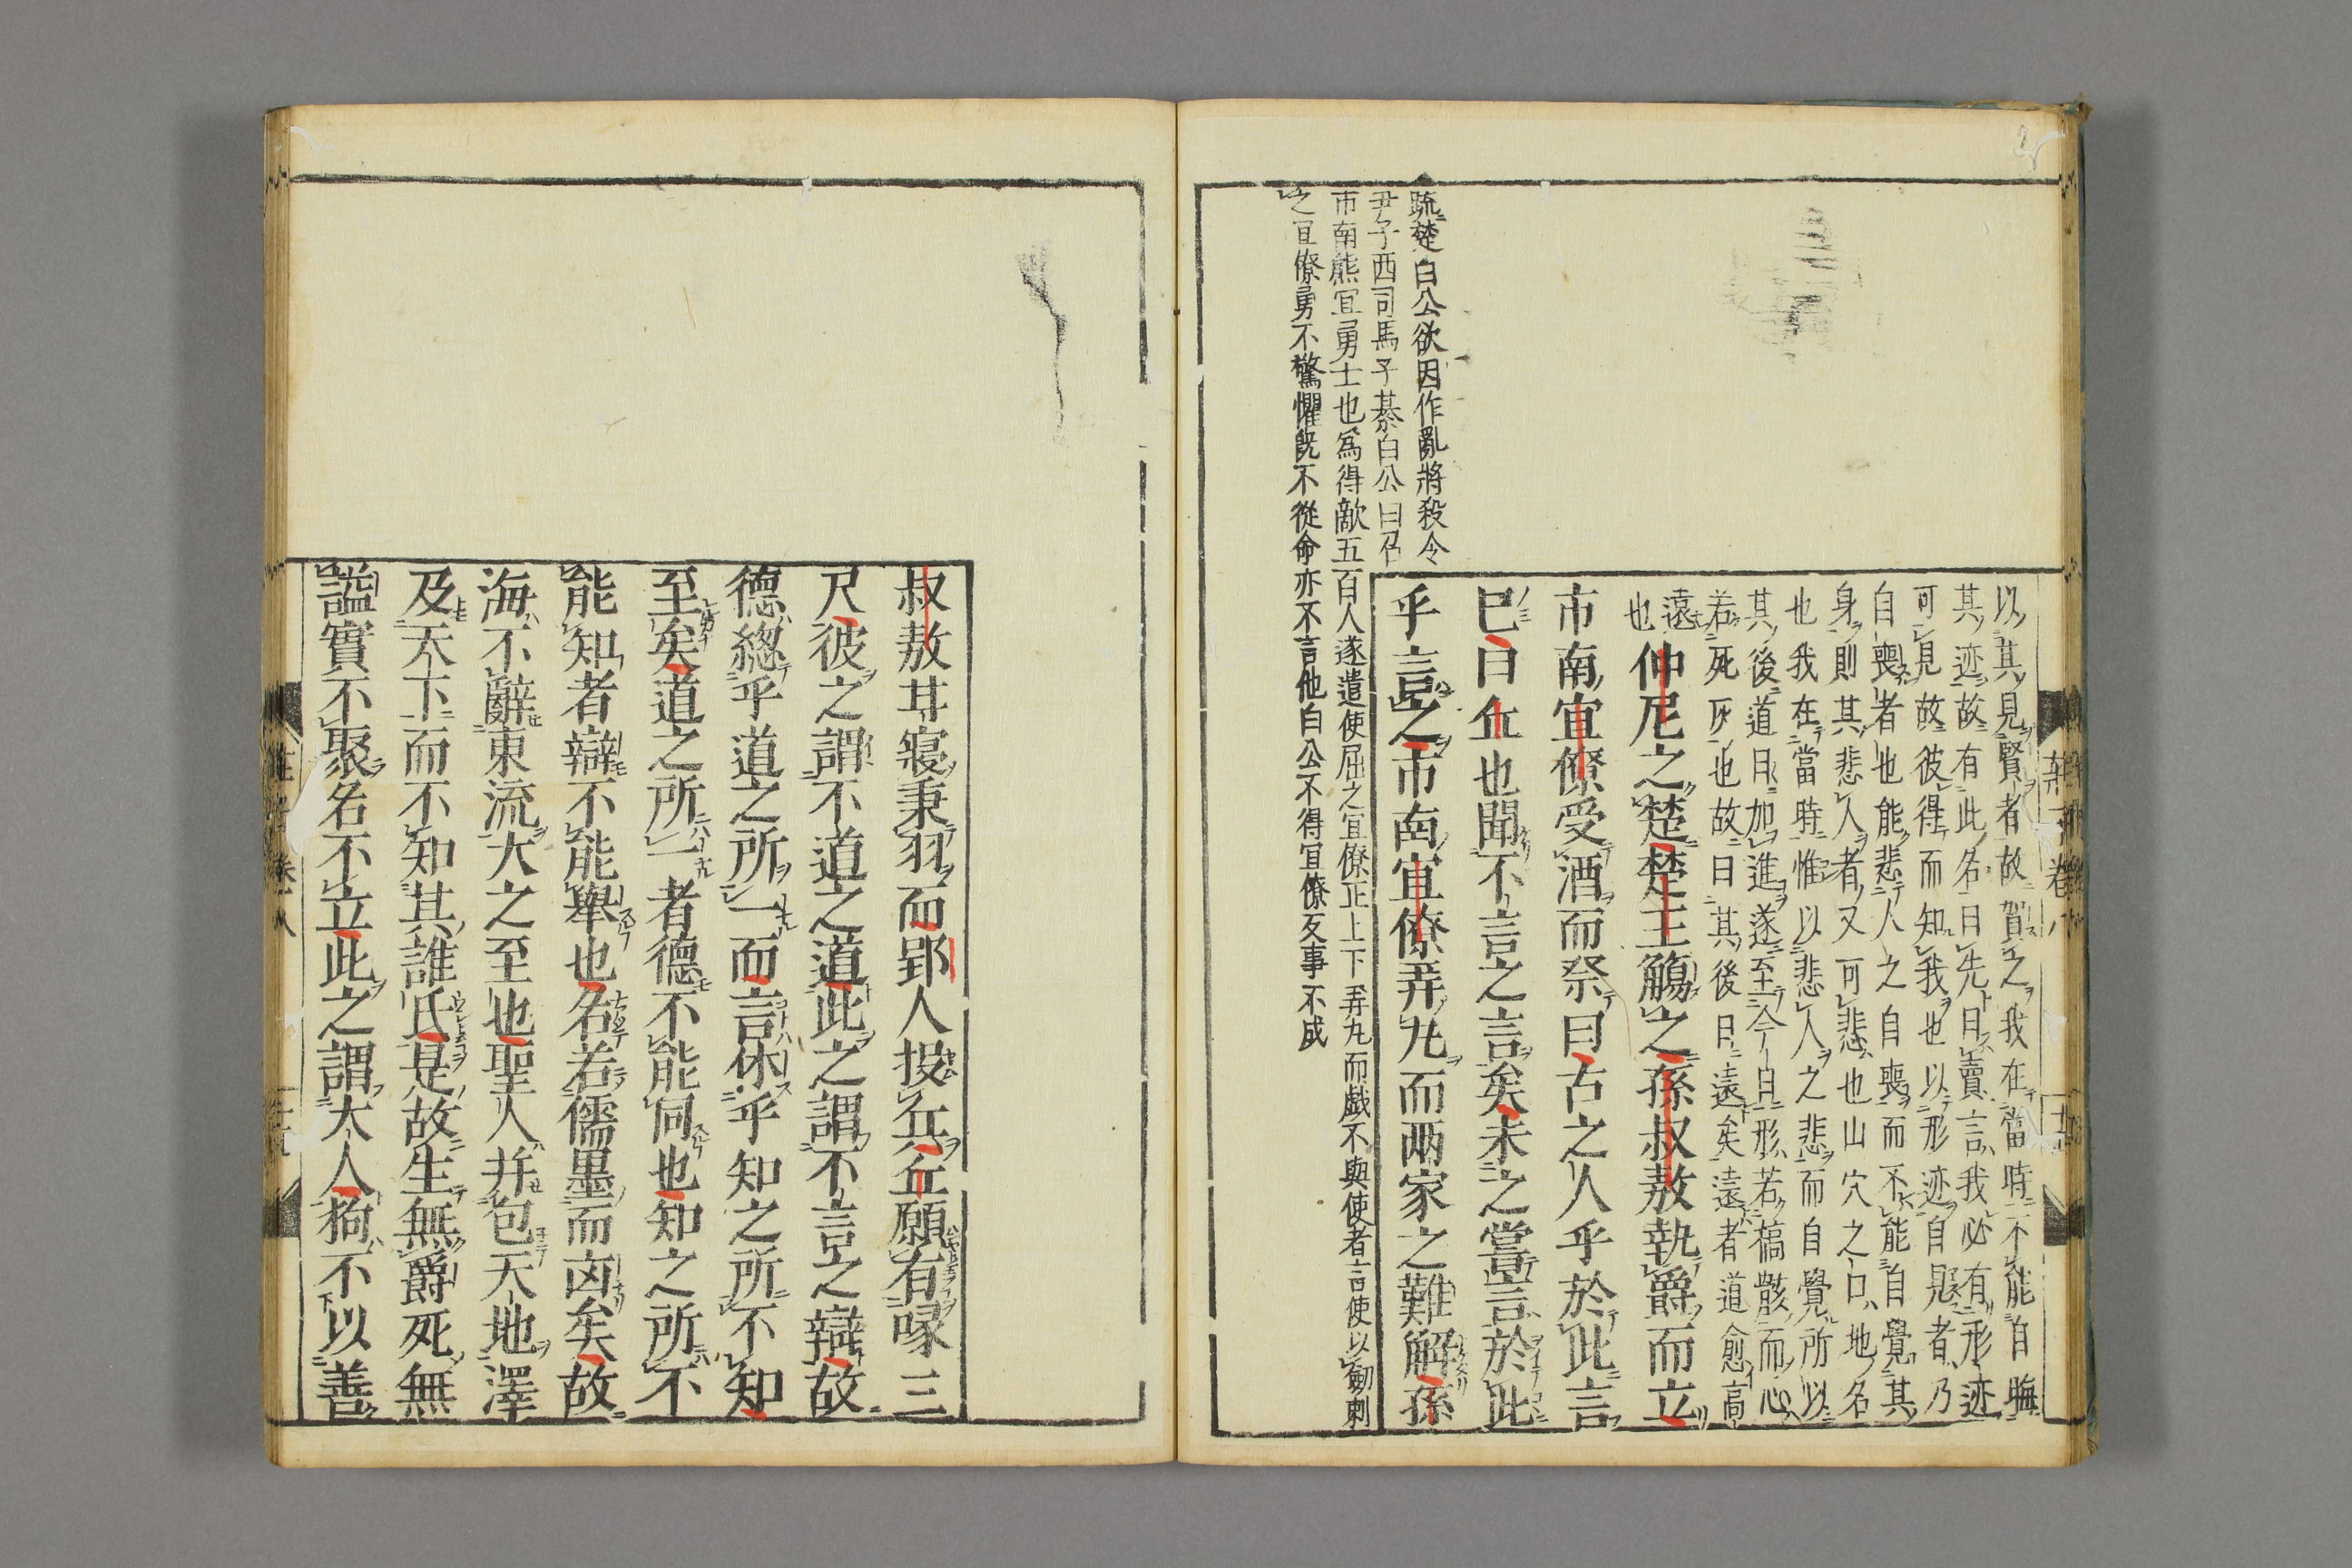 以其見賢者故賀之我在當時不能自晦
其迹故有此名曰先曰賣言我必有形迹
可見故彼得而知我也以形迹自見者乃
自喪者也能悲人之自喪而不能自覺其
身則其悲人者又可悲也山穴之口地名
也我在當時惟以悲人之悲而自覺所以
其後道日加進遂至今日形若槁骸而心
若死灰也故曰其後日遠矣遠者道愈高
遠也仲尼之楚楚王觴之孫叔敖執爵而立
市南宜僚受酒而祭曰古之人乎於此言
已曰丘也聞不言之言矣未之嘗言於此
乎言之市南宜僚弄丸而兩家之難解孫
疏楚白公欲因作亂將殺令
尹子西司馬子綦白公曰召
市南熊宜勇士也爲得敵五百人遂遣使屈之宜僚正上下弄丸而戲不與使者言使以劒刺
之宜僚勇不驚懼既不從命亦不言他白公不得宜僚反事不成
叔敖甘寢秉羽而郢人投兵丘願有喙三
尺彼之謂不道之道此之謂不言之辯故
德總乎道之所一而言休乎知之所不知
至矣道之所一者德不能同也知之所不
能知者辯不能舉也名若儒墨而凶矣故
海不辭東流大之至也聖人并包天地澤
及天下而不知其誰氏是故生無爵死無
謚實不聚名不立此之謂大人狗不以善